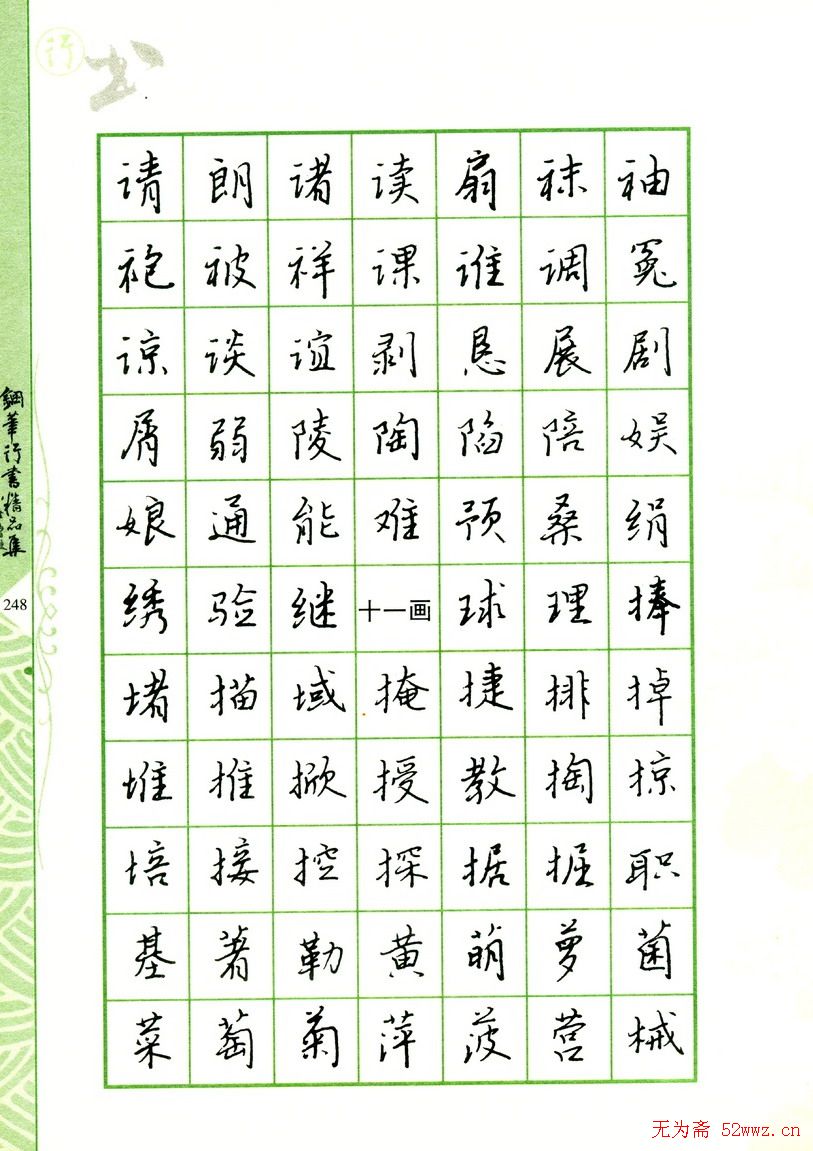 行书
请朗诸读扇袜袖
袍被祥课谁调冤
谅谈谊剥恳展剧
屑弱陵陶陷陪娱
娘通能难预桑绢
绣验继十一画球理捧
堵描域掩捷排掉
堆推掀授教掏掠
培接控探据掘职
基著勒黄萌萝菌
菜萄菊萍菠营械
鋼筆行書精品集
248
无为斋 52wwz.cn